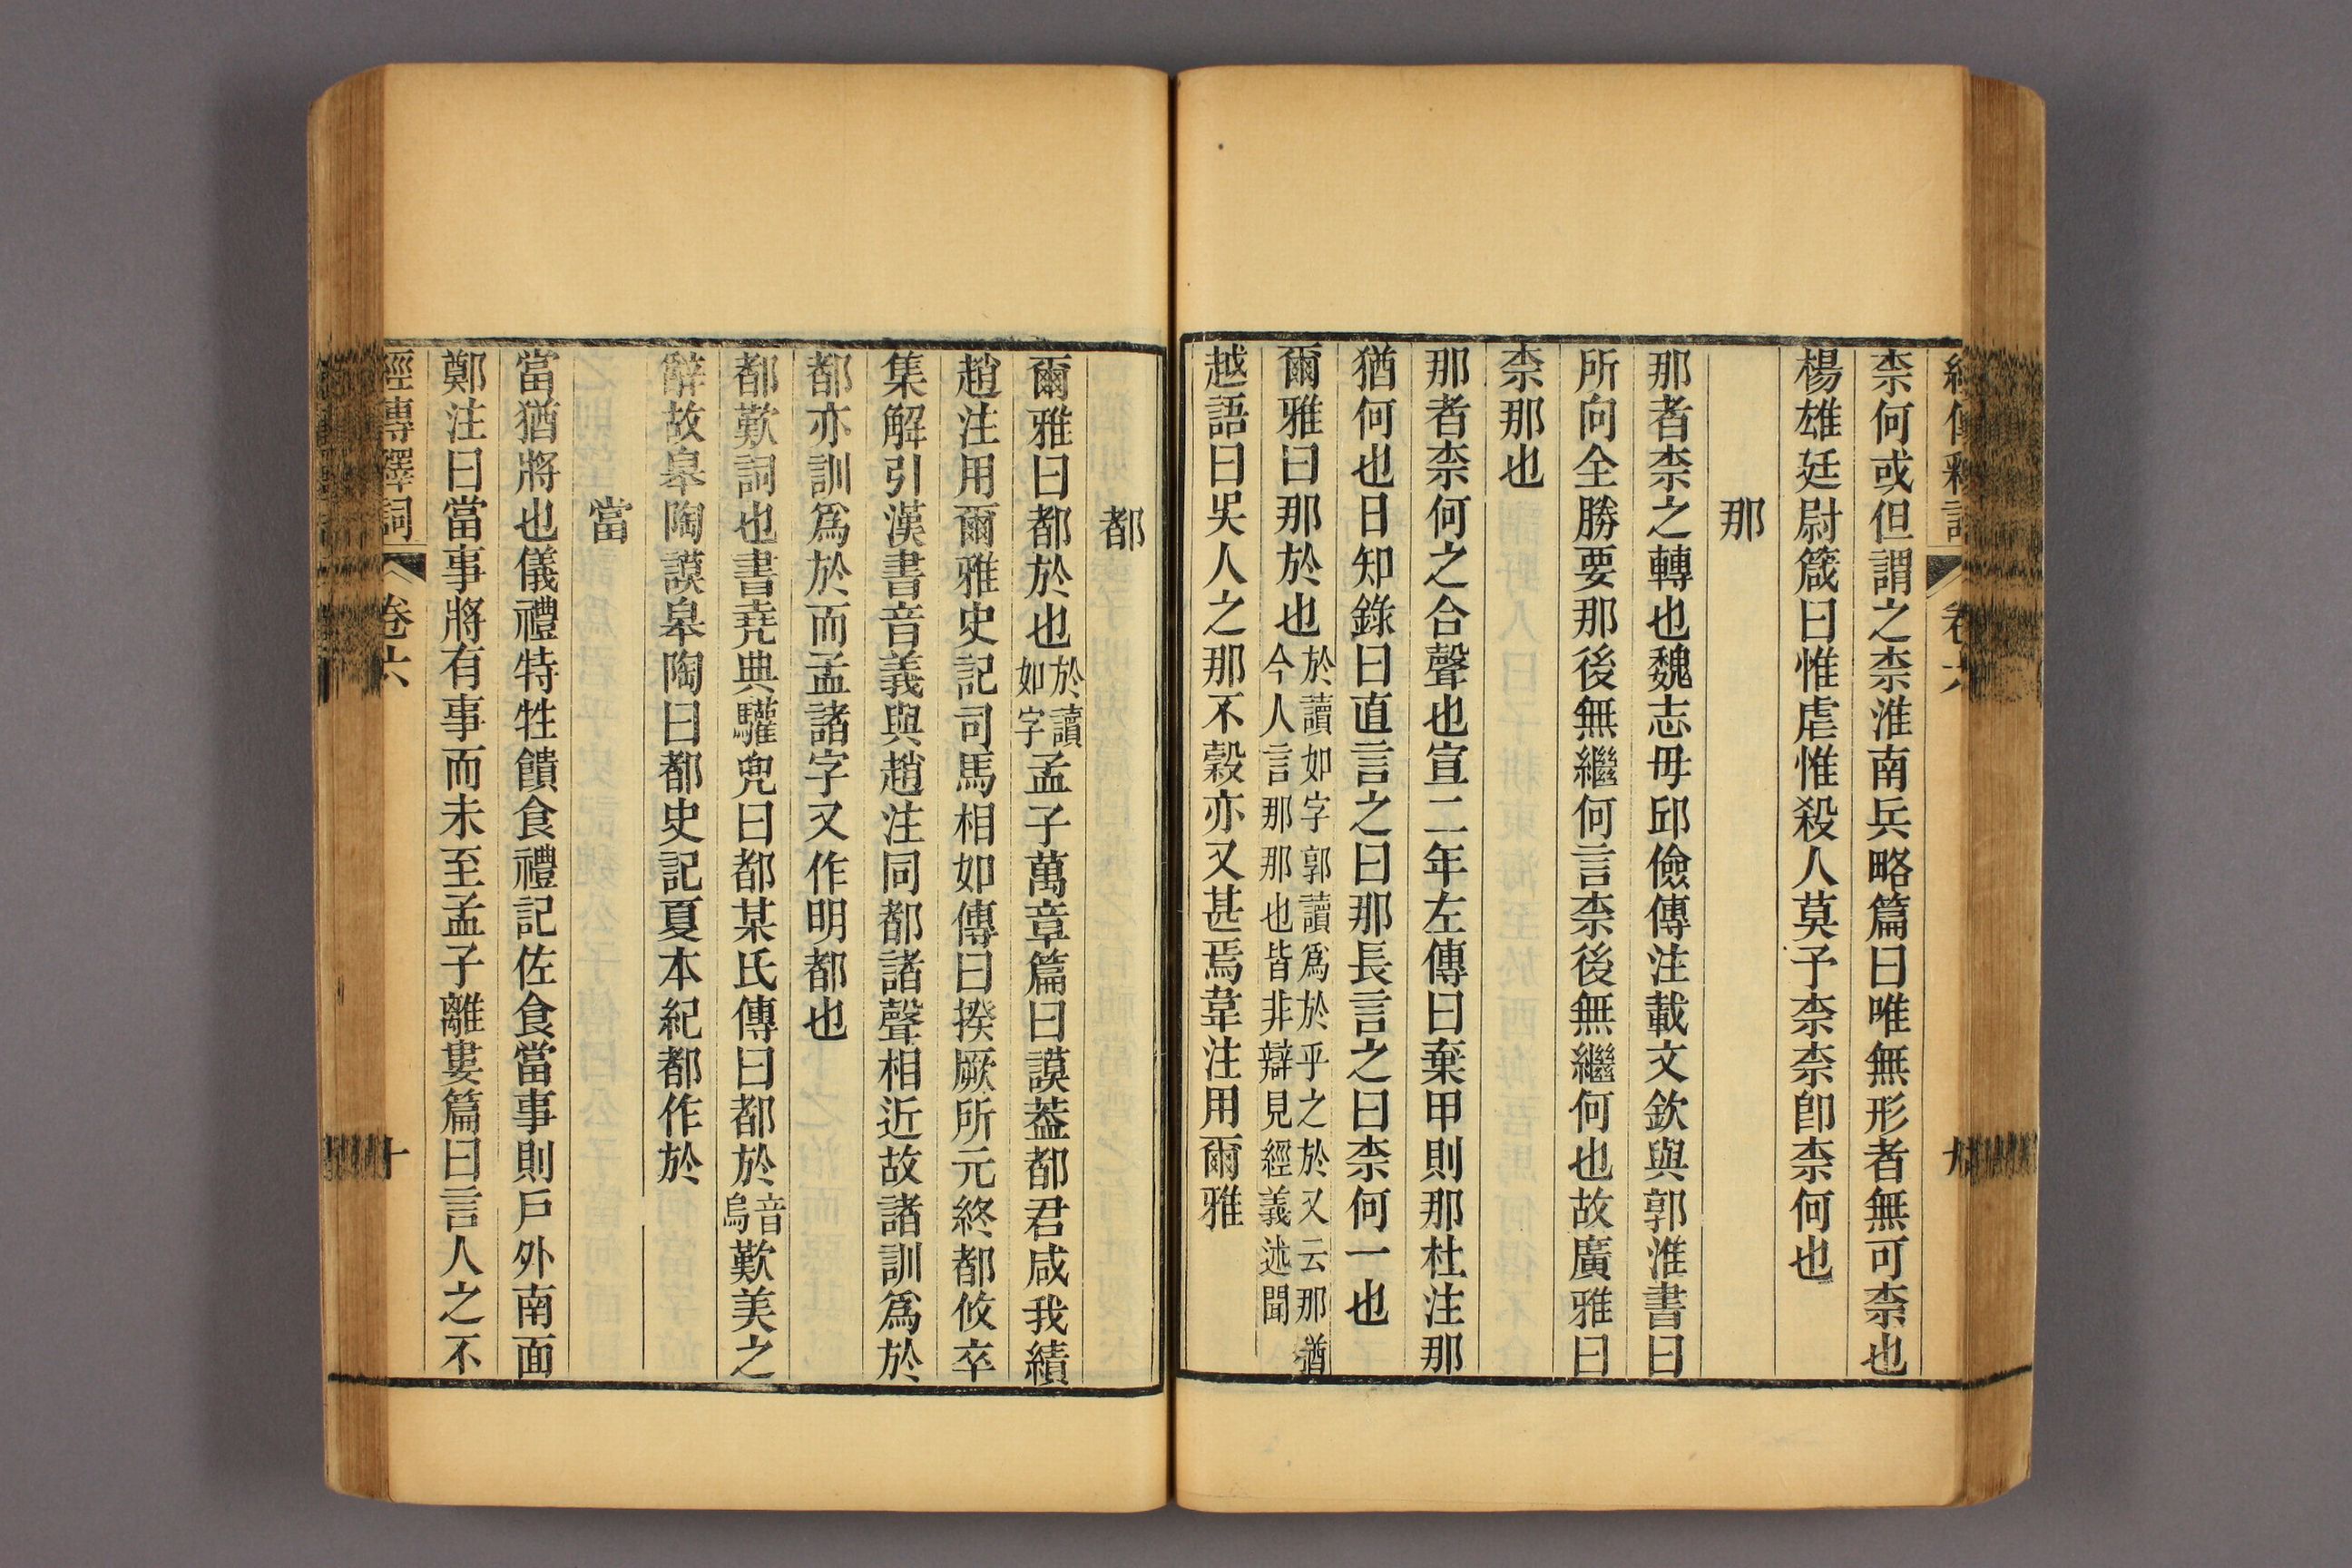 柰何或但謂之柰淮南兵略篇曰唯無形者無可柰也
楊雄廷尉箴曰惟虐惟殺人莫予柰柰卽柰何也
那
那者柰之轉也魏志毋邱儉傳注載文欽與郭淮書曰
所向全勝要那後無繼何言柰後無繼何也故廣雅曰
柰那也
那者柰何之合聲也宣二年左傳曰棄甲則那杜注那
猶何也日知錄曰直言之曰那長言之曰柰何一也
爾雅曰那於也於讀如字郭讀爲於乎之於又云那猶今人言那那也皆非辯見經義述聞
越語曰吳人之那不穀亦又甚焉韋注用爾雅
都
爾雅曰都於也於讀如字孟子萬章篇曰謨葢都君咸我績
趙注用爾雅史記司馬相如傳曰揆厥所元終都攸卒
集解引漢書音義與趙注同都諸聲相近故諸訓爲於
都亦訓爲於而孟諸字又作明都也
都歎詞也書堯典驩兜曰都某氏傳曰都於音烏歎美之
辭故皋陶謨皋陶曰都史記夏本紀都作於
當
當猶將也儀禮特牲饋食禮記佐食當事則戶外南面
鄭注曰當事將有事而未至孟子離婁篇曰言人之不
經傳釋詞 卷六 十